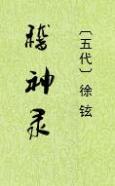 稽神录
〔五代〕徐铉